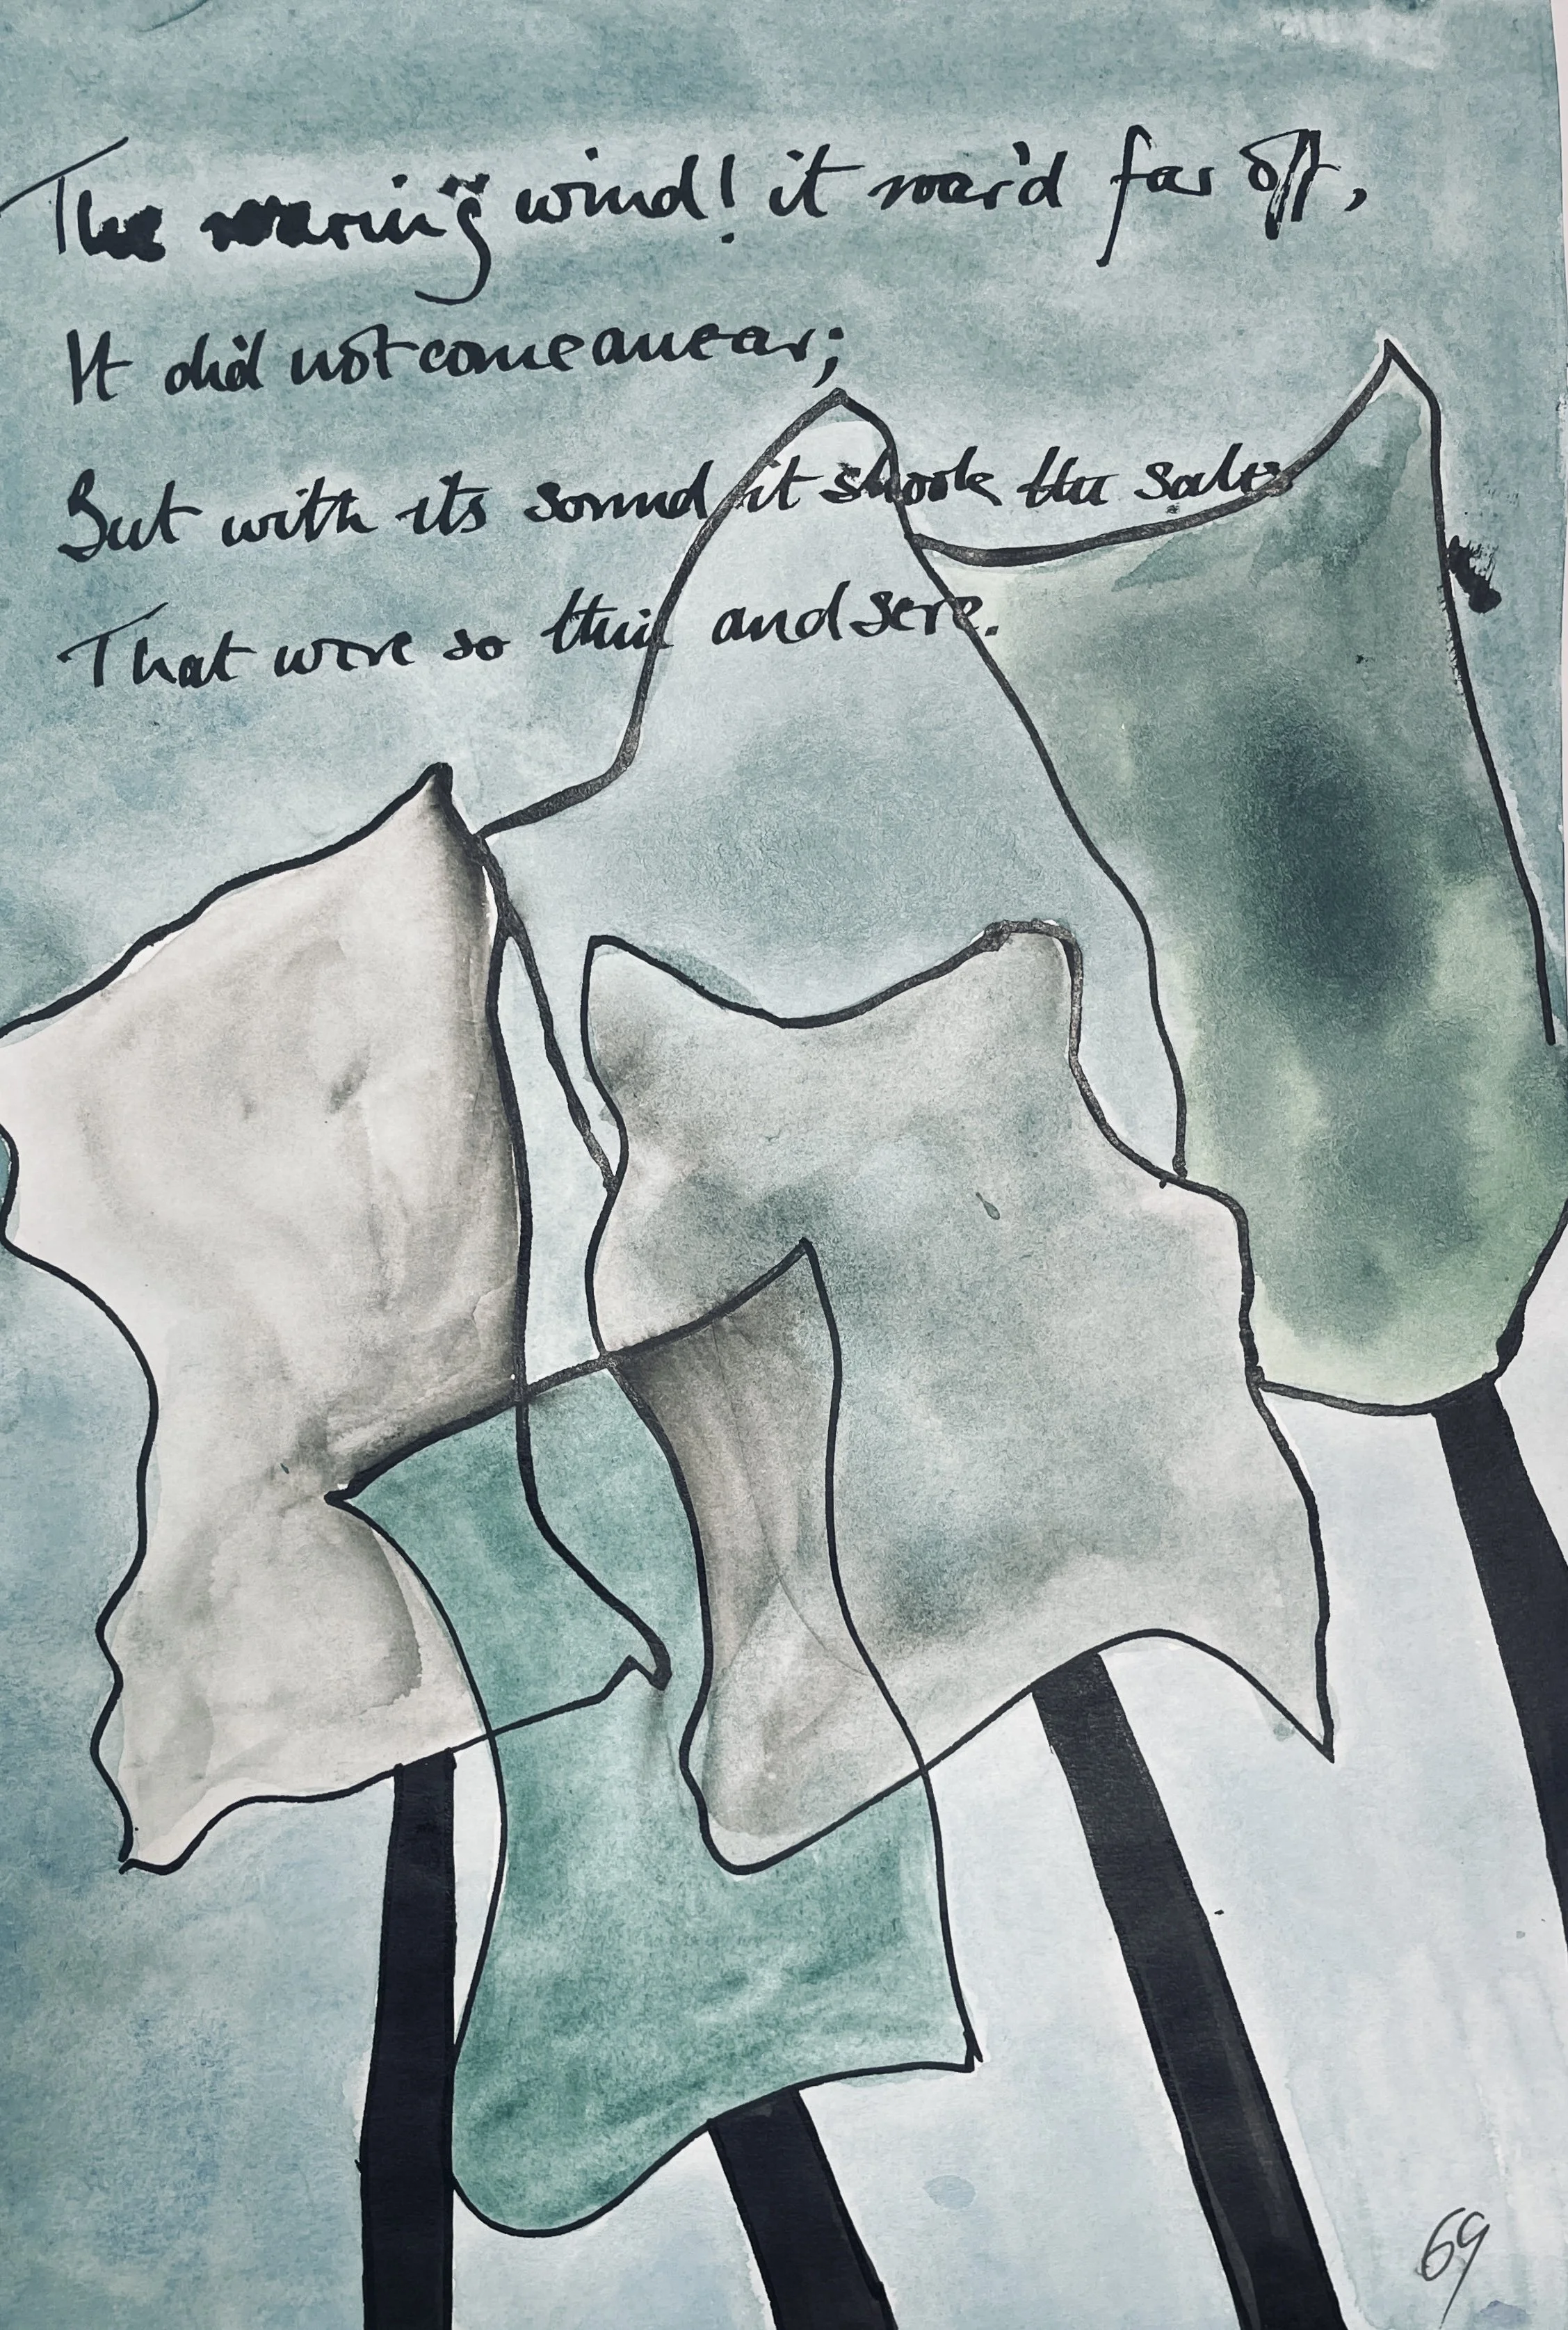 The roaring wind! it roar'd far off,
It did not come anear;
But with its sound it shook the sails
That were so thin and sere.
69